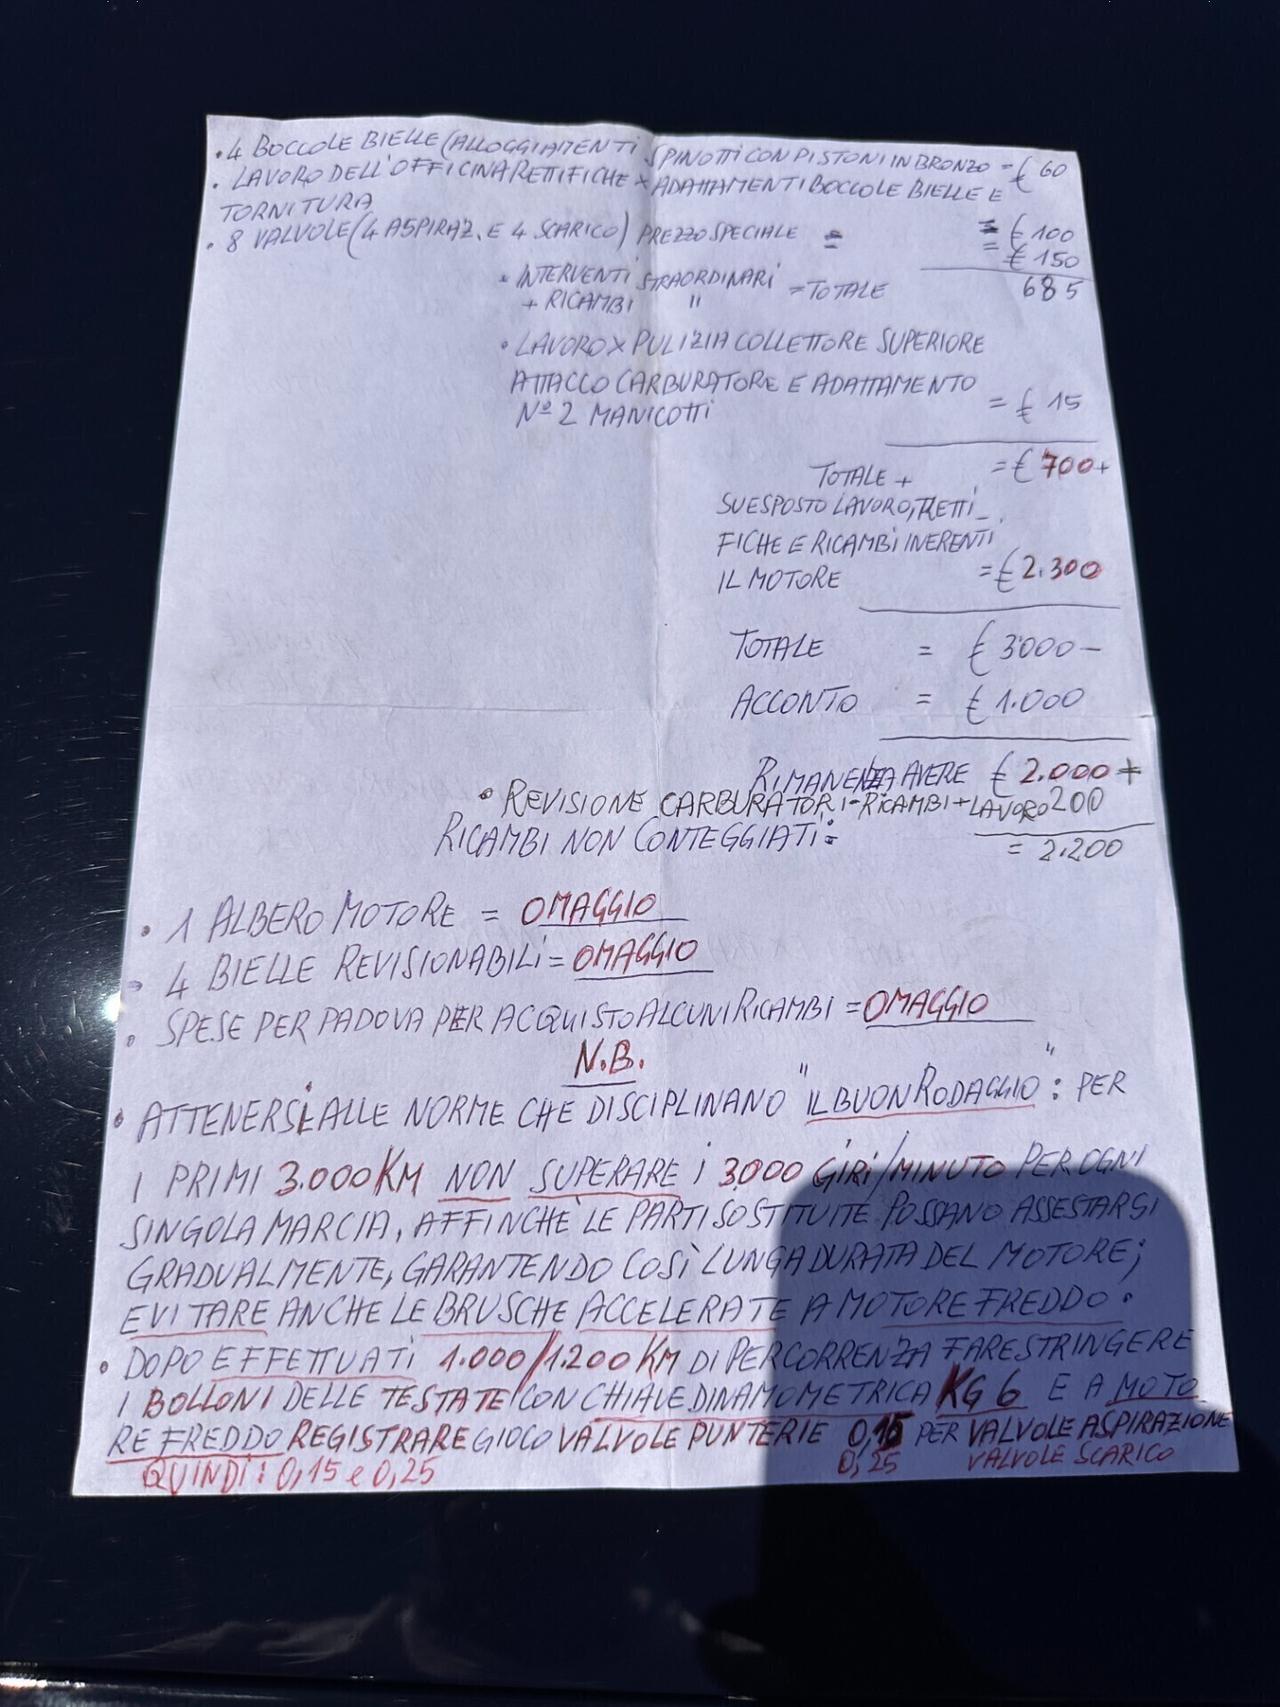 • 4 BOCCOLE BIELLE (ALLOGGIAMENTI SPINOTTI CON PISTONI IN BRONZO = £ 60
• LAVORO DELL'OFFICINA RETTIFICHE X ADATTAMENTI BOCCOLE BIELLE E
TORNITURA = £ 100
• 8 VALVOLE (4 ASPIRAZ. E 4 SCARICO) PREZZO SPECIALE = = £ 150
• INTERVENTI STRAORDINARI = TOTALE 685
+ RICAMBI "
• LAVORO X PULIZIA COLLETTORE SUPERIORE
ATTACCO CARBURATORE E ADATTAMENTO
Nº 2 MANICOTTI = £ 15
TOTALE + = £ 700+
SUESPOSTO LAVORO, RETTI-
FICHE E RICAMBI INERENTI
IL MOTORE = £ 2.300
TOTALE = £ 3000 -
ACCONTO = £ 1.000
RIMANENZA AVERE £ 2.000 +
• REVISIONE CARBURATORI - RICAMBI + LAVORO 200
RICAMBI NON CONTEGGIATI: = 2.200
• 1 ALBERO MOTORE = OMAGGIO
- 4 BIELLE REVISIONABILI = OMAGGIO
• SPESE PER PADOVA PER ACQUISTO ALCUNI RICAMBI = OMAGGIO
N.B.
• ATTENERSI ALLE NORME CHE DISCIPLINANO "IL BUON RODAGGIO": PER
I PRIMI 3.000 KM NON SUPERARE I 3000 GIRI/MINUTO PER OGNI
SINGOLA MARCIA, AFFINCHÈ LE PARTI SOSTITUITE POSSANO ASSESTARSI
GRADUALMENTE, GARANTENDO COSÌ LUNGA DURATA DEL MOTORE;
EVITARE ANCHE LE BRUSCHE ACCELERATE A MOTORE FREDDO.
• DOPO EFFETTUATI 1.000/1.200 KM DI PERCORRENZA FARE STRINGERE
I BOLLONI DELLE TESTATE CON CHIAVE DINAMOMETRICA KG 6 E A MOTO
RE FREDDO REGISTRARE GIOCO VALVOLE PUNTERIE 0,15 PER VALVOLE ASPIRAZIONE
QUINDI: 0,15 e 0,25 0,25 VALVOLE SCARICO